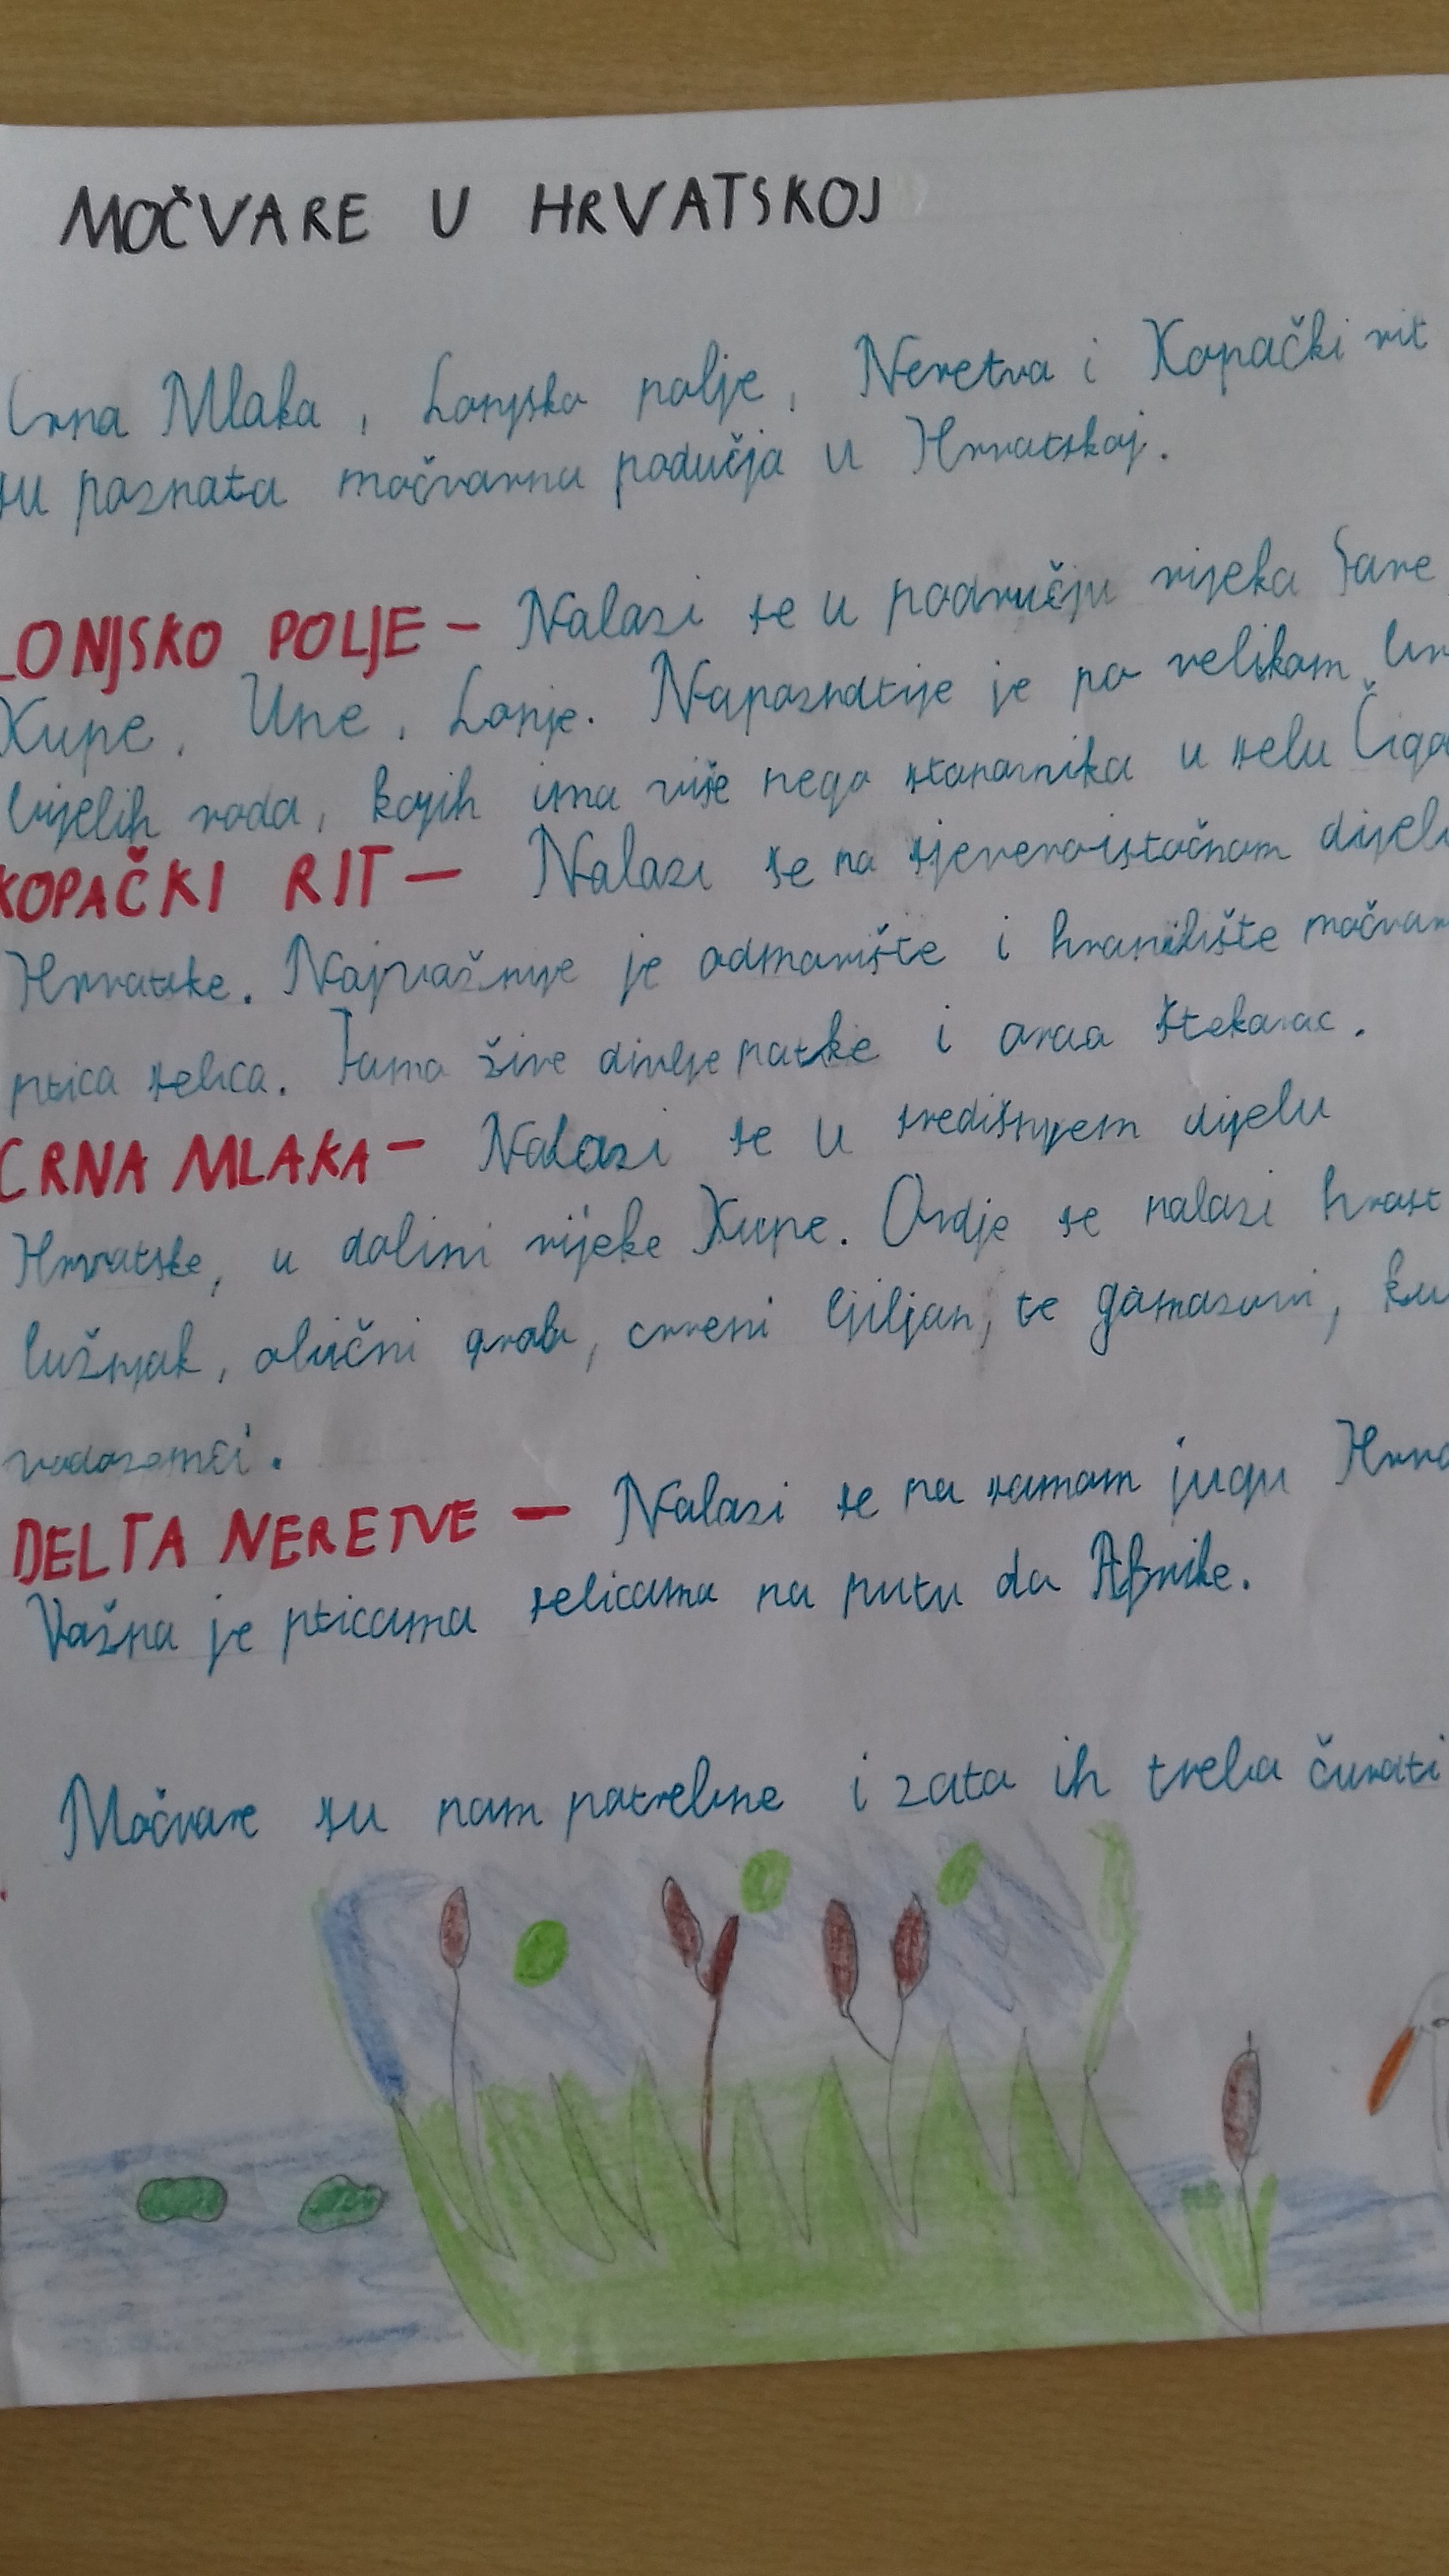 MOČVARE U HRVATSKOJ
Crna Mlaka, Lonjsko polje, Neretva i Kopački rit
su poznata močvarna područja u Hrvatskoj.
LONJSKO POLJE - Nalazi se u području rijeka Save
Kupe, Une, Lonje. Napoznatije je po velikom
bijelih roda, kojih ima više nego stanovnika u selu Čigo
KOPAČKI RIT - Nalazi se na sjeveroistočnom dijelu
Hrvatske. Najvažnije je odmorište i hranilište močvar
ptica selica. Tamo žive divlje patke i orao štekavac.
CRNA MLAKA - Nalazi se u središnjem dijelu
Hrvatske, u dolini rijeke Kupe. Ovdje se nalazi hrast
lužnjak, obični grab, crveni ljiljan, te gmazovi, ku
vodozemci.
DELTA NERETVE - Nalazi se na samom jugu Hrva
Važna je pticama selicama na putu do Afrike.
Močvare su nam potrebne i zato ih treba čuvati